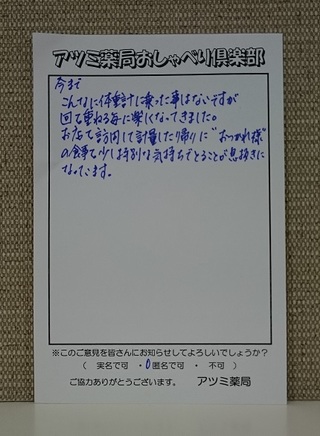 アツミ薬局おしゃべり倶楽部
今まで
こんなに体重計に乗った事はないですが
回を重ねる毎に楽しくなってきました。
お店を訪問して計量した帰りに"おつかれ様"
の食事を少し特別な気持ちでとることが息抜きに
なっています。
※このご意見を皆さんにお知らせしてよろしいでしょうか?
( 実名で可 ・ 匿名で可 ・ 不可 )
ご協力ありがとうございます。 アツミ薬局